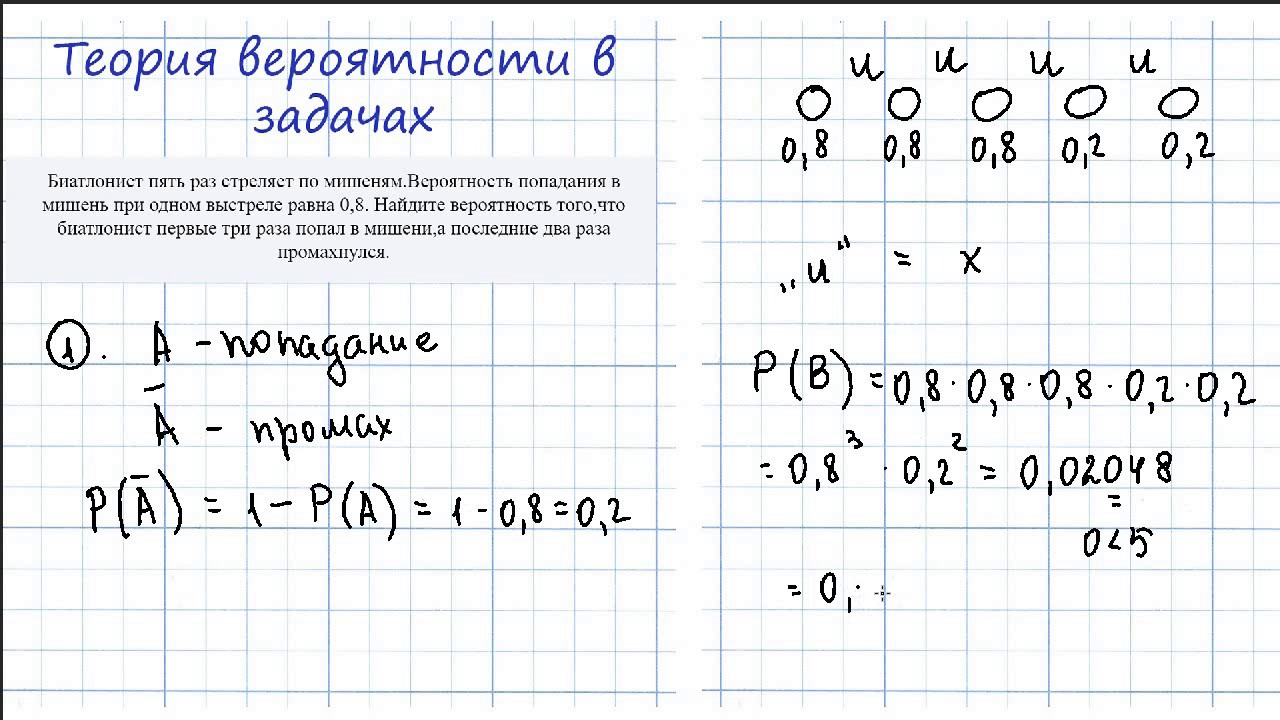 Теория вероятности в
задачах
Биатлонист пять раз стреляет по мишеням.Вероятность попадания в
мишень при одном выстреле равна 0,8. Найдите вероятность того,что
биатлонист первые три раза попал в мишени,а последние два раза
промахнулся.
1. A - попадание
Ā - промах
P(Ā) = 1 - P(A) = 1 - 0,8 = 0,2
и и и и
0,8 0,8 0,8 0,2 0,2
„и“ = x
P(B) = 0,8 · 0,8 · 0,8 · 0,2 · 0,2
= 0,8³ · 0,2² = 0,02048
=
0<5
= 0,